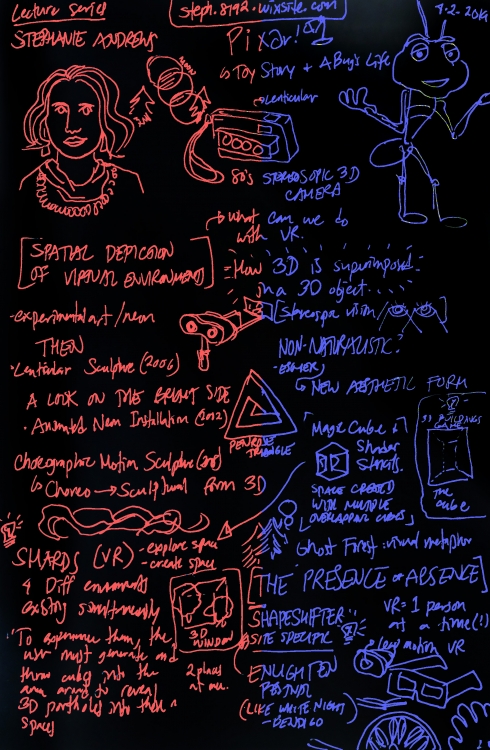 Lecture Series
STEPHANIE ANDREWS
steph.8792.wixsite.com
4-2-2019
Pixar!
Toy Story + A Bug's Life
Lenticular
80's STEREOSCOPIC 3D
CAMERA
what can we do
with VR.
SPATIAL DEPICTION
OF VIRTUAL ENVIRONMENTS
How 3D is superimposed
in a 3D object...
- experimental art / neon
Stereoscopic vision
THEN
Lenticular Sculpture (2006)
NON-NATURALISTIC?
- ESCHER
NEW AESTHETIC FORM
A LOOK ON THE BRIGHT SIDE
Animated Neon Installation (2012)
PENROSE
TRIANGLE
Magic Cube
Shader
3D BUILDINGS
GAME
the
cube
Choreographic Motion Sculpture
Choreo → Sculptural form 3D
SPACE CREATED
WITH MULTIPLE
OVERLAPPING CUBES
Ghost Forest: visual metaphor
SHARDS (VR)
- explore space
- create space
4 Diff environments
existing simultaneously
THE PRESENCE of ABSENCE
"To experience them, the
user must generate and
throw cubes into the
area around to reveal
3D portholes into these
spaces
3D
WINDOW
2 places
at one.
SHAPESHIFTER
SITE SPECIFIC
VR = 1 person
at a time (!)
leap motion VR
ENLIGHTEN
FESTIVAL
(LIKE WHITE NIGHT
- BENDIGO